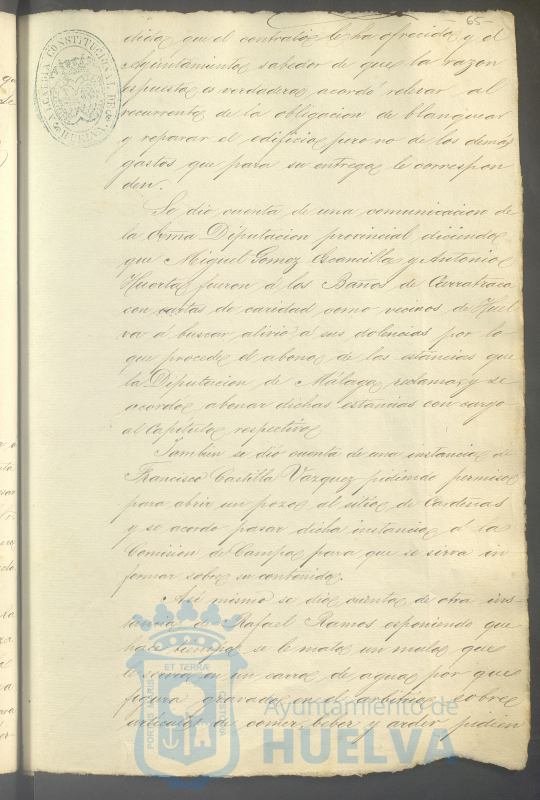 65-
ALCALDIA CONSTITUCIONAL DE
HUELVA
dida que el contratos le ha ofrecida y el
Ayuntamiento sabedor de que la razon
espuesta es verdadera acordó relevar al
recurrente de la obligacion de blanquear
y reparar el edificio pero no de los demás
gastos que para su entrega le correspon
den.
Se dio cuenta de una comunicacion de
la Exma Diputacion provincial diciendo
que Miguel Gomez y Antonio
Huerta fueron á los Baños de Carratraca
con cartas de caridad como vecinos de Huel
va á buscar alivio á sus dolencias por lo
que procede el abono de las estancias que
la Diputacion de Málaga reclama y se
acordó abonar dichas estancias con cargo
al Capítulo respectivo
Tambien se dió cuenta de una instancia de
Francisco Castilla Vazquez pidiendo permiso
para abrir un pozo al sitio de Cardeñas
y se acordo pasar dicha instancia á la
Comision de Campo para que se sirva in
formar sobre su contenido.
Así mismo se dio cuenta de otra ins
tancia de Rafael Ramos esponiendo que
hace tiempo se le mató un mulo que
le servia en un carro de agua por que
figura gravado en el arbitrio sobre
articulos de comer, beber y arder pidien
PORTUS MARIS
ET TERRÆ
CUSTODIA
Ayuntamiento de
HUELVA